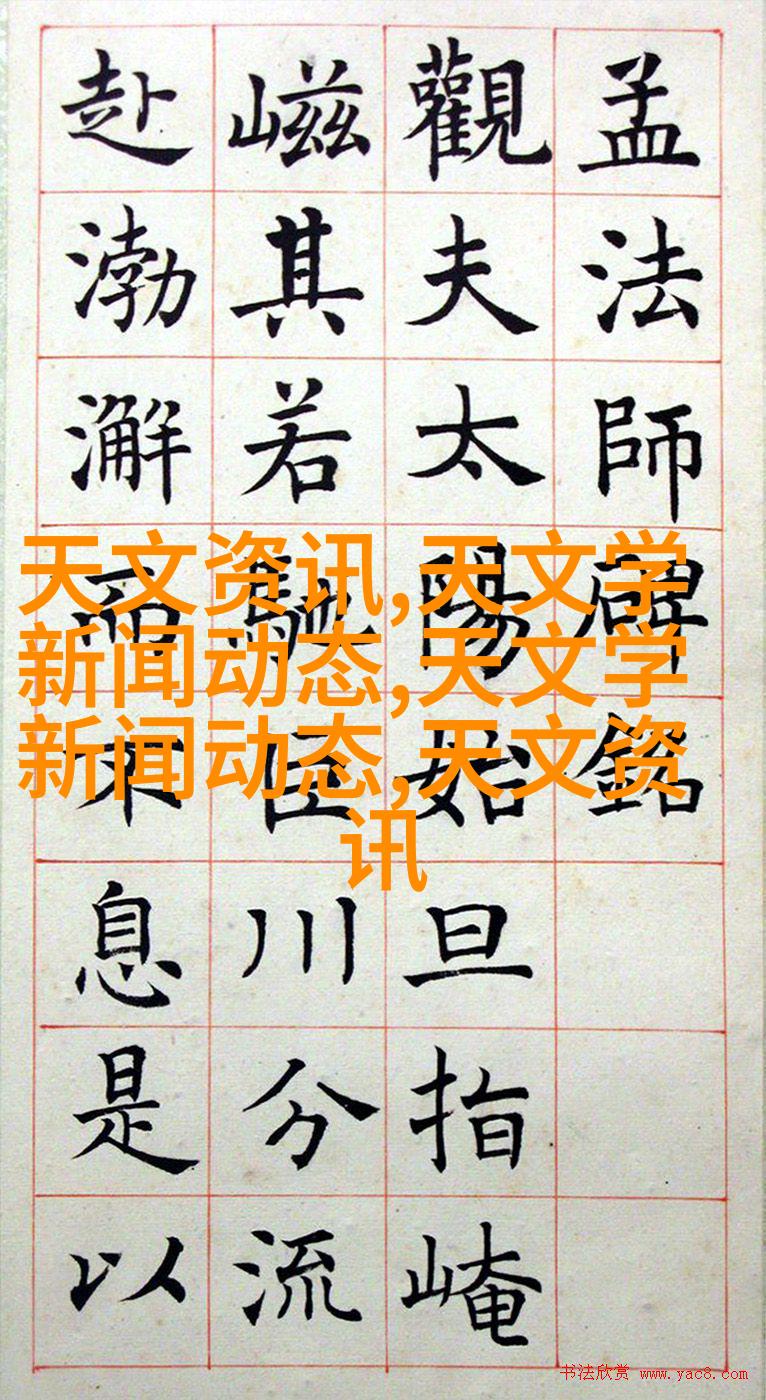 孟法師碑銘
觀夫太陽始旦指崦
嵫其若馳巨川分流
赴渤澥而不息是以
天文资讯,天文学
新闻动态,天文学
新闻动态,天文资
讯
书法欣赏 www.yac8.com